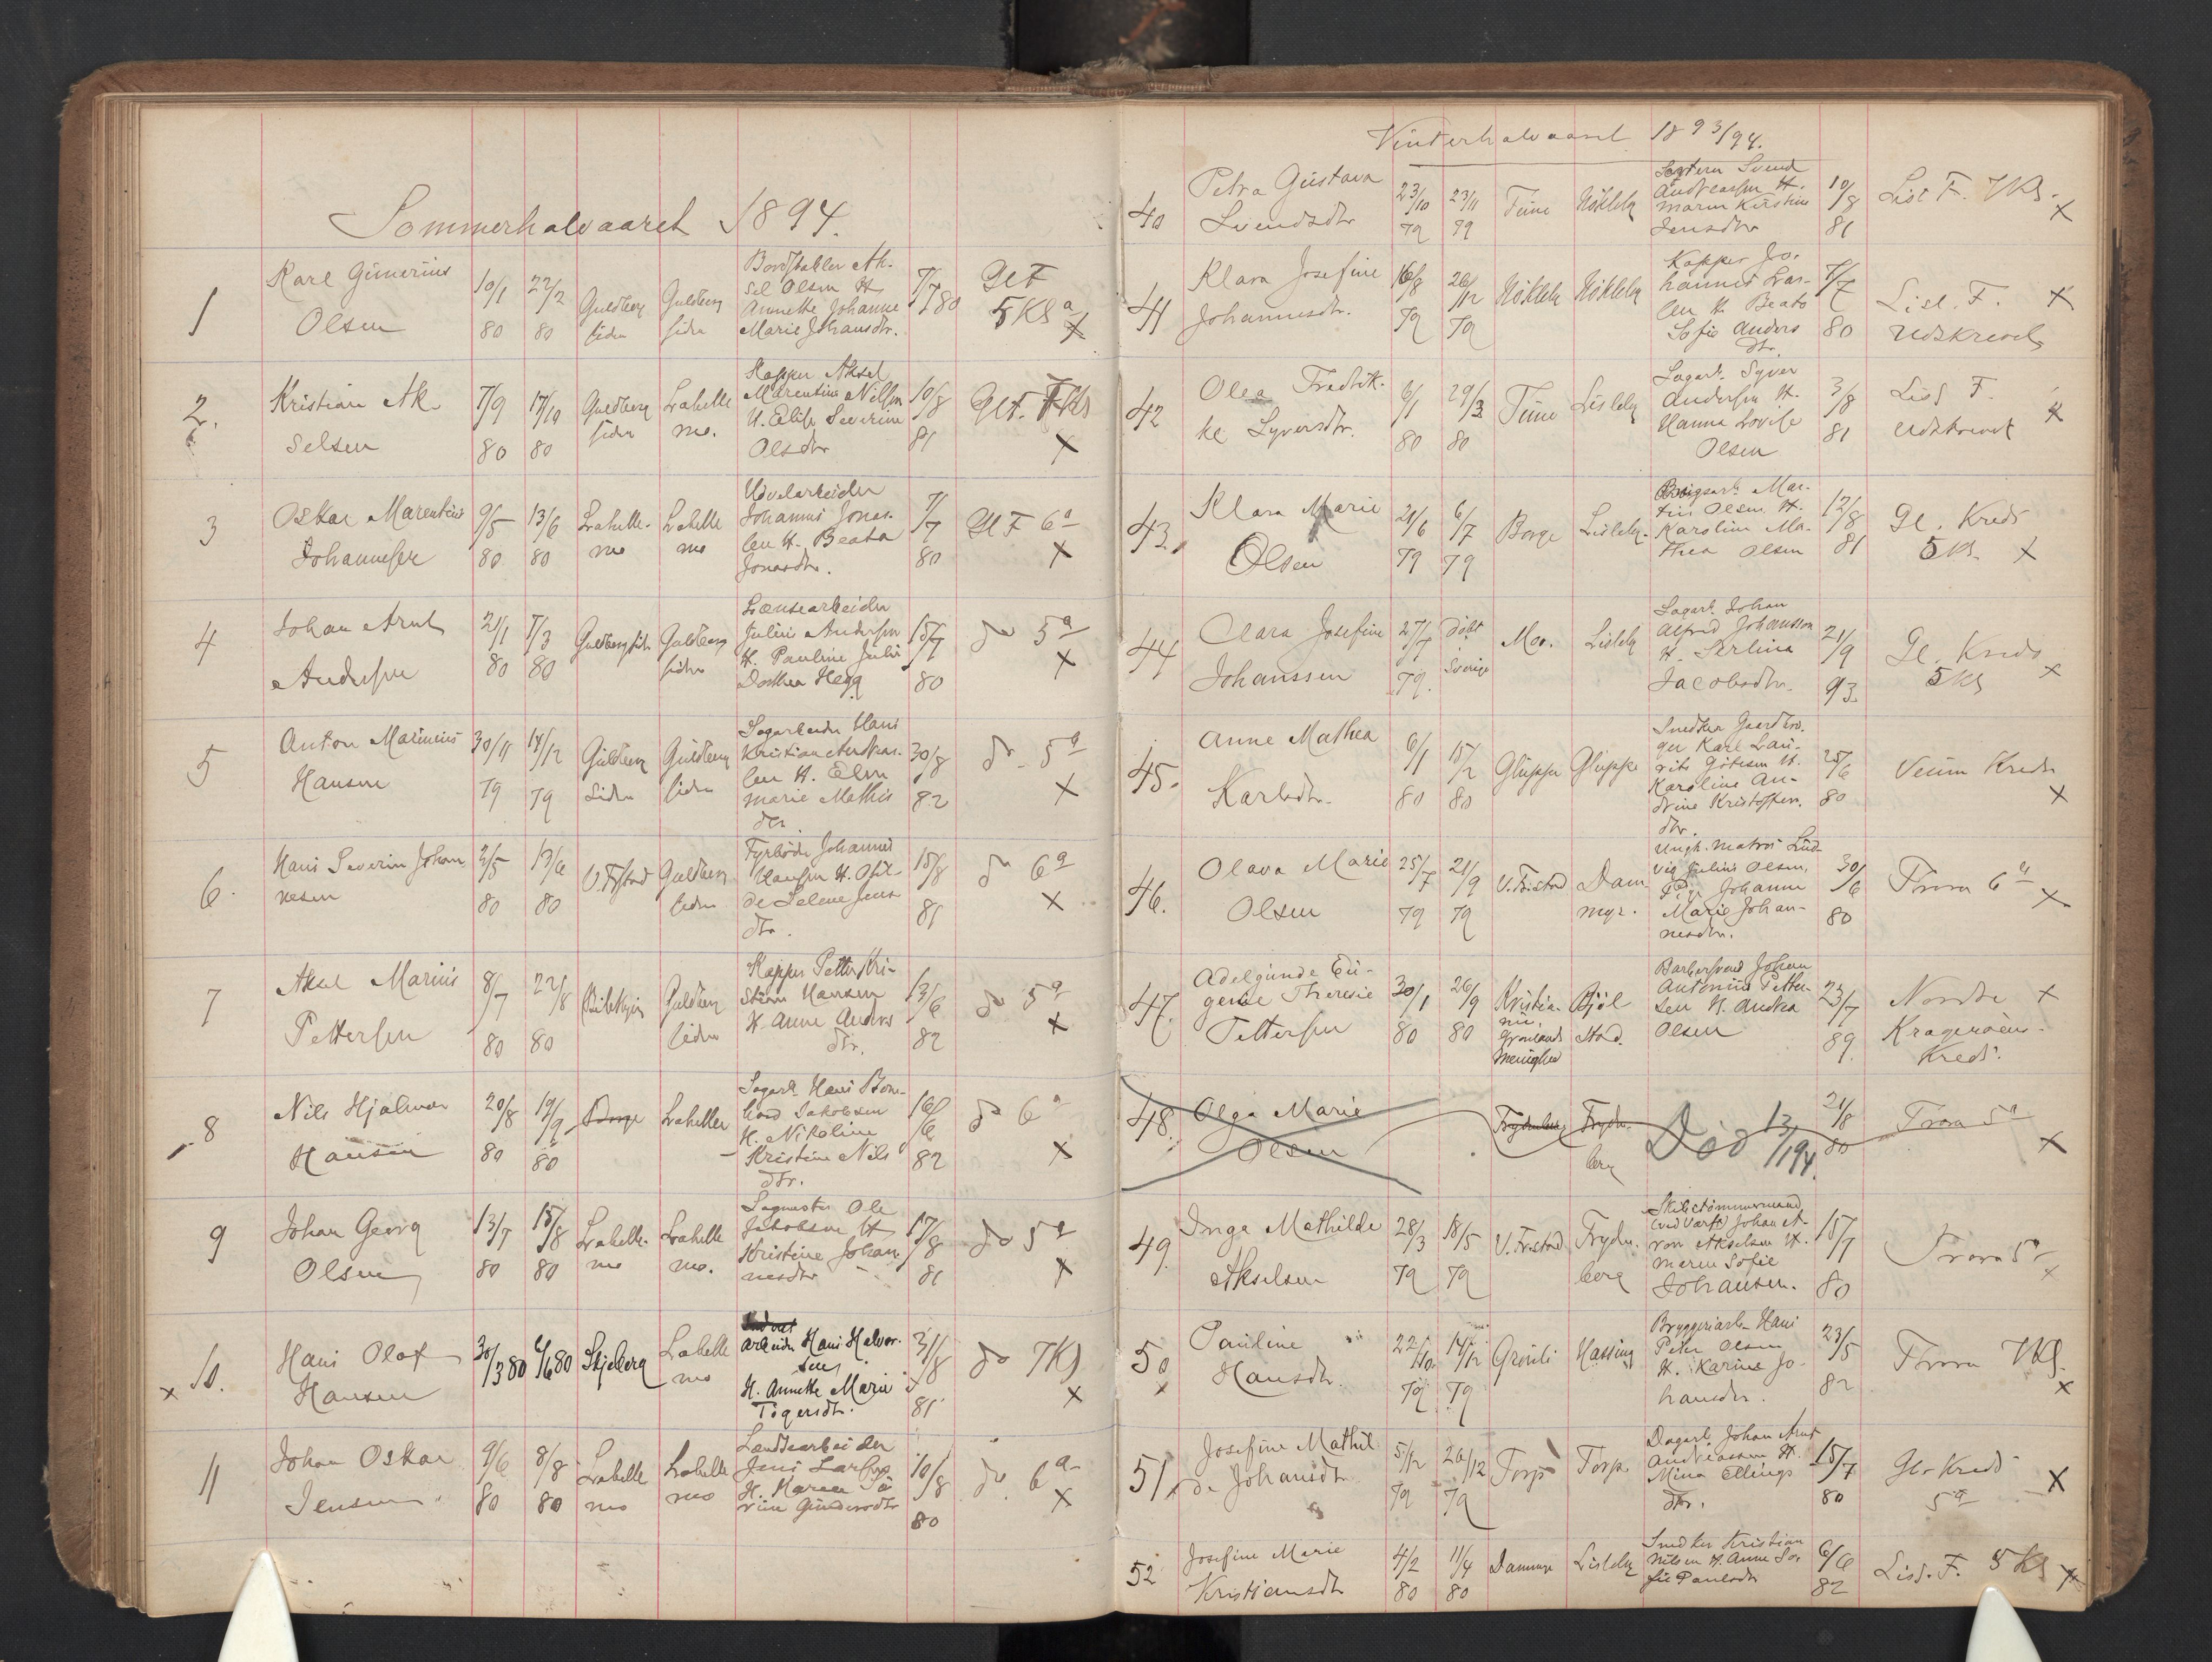 Sommerhalvaaret 1894.
1 Karl Gunerius Olsen 10/1 80 22/2 80 Guldberg siden Guldberg siden
Bordstabler Ak-
sel Olsen H
Annette Johanne
Marie Johansdtr.
7/7 80 Gl F 5 Kl a x
2. Kristian Ak-
selsen 7/9 80 17/10 80 Guldberg siden Lahelle mo.
Kapper Aksel
Marentius Nilsen
H. Elise Severine
Olsdtr
10/8 81 Gl F. 7 Kl x
3 Oskar Marentius
Johannesen 9/5 80 13/6 80 Lahelle- mo Lahelle mo
Udvalarbeider
Johannes Jonas-
sen H. Beata
Jonasdtr.
7/7 80 Gl F 6a x
4 Johan Arnt
Andersen 21/1 80 7/3 80 Guldbergsid. Guldberg siden
Lænsearbeider
Julius Andersen
H. Pauline Julie
Dorthea Hegg
15/7 80 do 5a x
5 Anton Marinius
Hansen 30/11 79 14/12 79 Guldberg Siden Guldberg siden
Sagarbeider Hans
Kristian Andreas-
sen H. Elen
Marie Mathis
dtr.
30/8 82 do 5a x
6. Hans Severin Johan-
nesen 2/5 80 13/6 80 V. Frstad Guldberg siden
Fyrbøder Johannes
Hansen H. Otil-
de Selene Jens
dtr.
15/8 81 do 6a x
7 Aksel Marius
Pettersen 8/7 80 22/8 80 Guldberg siden
Kapper Petter Kri-
stian Hansen
H. Anne Anders
dtr.
13/6 82 do 5a x
8 Nils Hjalmar
Hansen 20/8 80 19/9 80 Borge Lahellen
Sagarb. Hans Bern-
hard Jakobsen
H. Nikoline
Kristine Nils
dtr.
16/6 82 do 6a x
9 Johan Georg
Olsen 13/7 80 15/8 80 Lahelle- mo Lahelle mo.
Sagmester Ole
Jakobsen H
Kristine Johan-
nesdtr
17/8 81 do 5a x
x 10. Hans Olaf
Hansen 30/3 80 6/6 80 Skjeberg Lahelle mo
Arbeider Hans Halvor-
sen
H. Annette Marie
Tigersdtr.
31/8 81 do 7 Kl x
11 Johan Oskar
Jensen 9/6 80 8/8 80 Lahelle mo Lahelle mo
Landsearbeider
Jens Larsen
H. Karen
Gundersdtr
10/8 80 do. 6a x
Vinterhalvaaret 1893/94.
40 Petra Gustava
Svendsdtr 23/10 79 23/11 79 Tune Nøkleby
Svend
Andreassen H.
Maren Kirstine
Jensdtr
10/8 81 Lisl F. 7 Kl. x
41 Klara Josefine
Johannesdtr. 16/8 79 26/12 79 Nøkleby Nøkleby
Kapper Jo-
hannes Lar-
sen H. Beate
Sofie Anders
dtr.
7/7 80 Lisl. F. x
Udskrevet
42 Olea Fredrik-
ke Syversdtr. 6/1 80 29/3 80 Tune Lisleby
Sagarb. Syver
Andersen H.
Hanna Lovise
Olsen
3/8 81 Lisl F.
Udskrevet x
43. Klara Marie
Olsen 21/6 79 6/7 79 Borge Lisleby.
Mar-
tin Olsen H.
Karoline Ma-
thea Olsen
12/8 81 Gl. Kreds
5 Kl. x
44 Clara Josefine
Johanssen 27/7 79. Døbt i Sverige Mos. Lisleby
Sagarb. Johan
Alfred Johansson
H. Serlina
Jacobsdtr.
21/9 93. Gl. Kreds
5 Kl x
45. Anne Mathea
Karlsdtr. 6/1 80 15/2 80 Gluppe Gluppe
Snedker Gaardbru-
ger Karl Lau-
rits Gitesen H.
Karoline An-
drine Kristoffers.
dtr.
25/6 80 Veum Kreds x
46. Olava Marie
Olsen 25/7 79 21/9 79 V. Fr.stad Dam myr.
Ungk. matros Lud-
vig Julius Olsen,
Pige Johanne
Marie Johan-
nesdtr.
30/6 80 Trara 6a x
47. Adelgunde Eu-
genie Theresie
Pettersen 30/1 80 26/9 80 Kristia- nia, Grønlands Menighed Bjøl stad.
Barbersvend Johan
Antonius Petter-
sen H. Andrea
Olsen
23/7 89. Nordre x
Kragerøens
Kreds.
48. Olga Marie
Olsen Frydenberg Fryden- berg Død 13/1 94. 21/8 80 Trara 5a x
49. Inga Mathilde
Akselsen 28/3 79 18/5 79 V. Fr.stad Fryden- berg
Skibstømmermand
(ved Værft) Johan A-
ron Akselsen H.
Maren Sofie
Johansen.
15/7 80 Trara 5a x
50 x Pauline
Hansdtr. 22/10 79 14/12 79 Grønli Hassing
Bryggeriarb. Hans
Peter Olsen
H. Karine Jo-
hansdtr.
23/5 82 Trara 7 Kl. x
51 Josefine Mathil-
de Johansdtr. 5/12 79 26/12 79 Torp Torp
Dagarb. Johan Arnt
Andreassen H.
Mina Ellings
dtr.
15/7 80 Gl. Kreds
5a x
52 Josefine Marie
Kristiansdtr 4/2 80 11/4 80 Dammyr Lisleby
Snedker Kristian
Nilsen H. Anne So-
fie Paulsdtr
6/6 82 Lisl. F. 5 Kl x